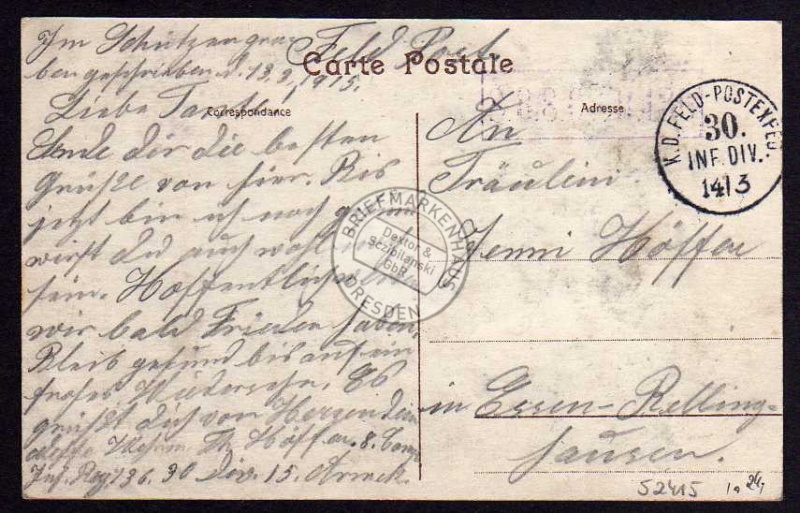 Feld Post
Im Schützengra
ben geschrieben d. 13.3.1915.
Carte Postale
Correspondance
Adresse
Liebe Tante!
Sende dir die besten
Grüße von hier. Bis
jetzt bin ich noch gesund
wirst du auch wohl
sein. Hoffentlich
wir bald Frieden haben.
Bleib gesund bis auf ein
frohes Wiedersehn. Es
grüßt dich von Herzen dein
Neffe Höffer. 8. Comp
Inf. Reg. 136. 30 Div. 15. Armek.
An
Fräulein
Jenni Höffer
in Essen-Relling-
hausen.
K.D. FELD-POSTEXPED.
30.
INF. DIV.
14/3
BRIEFMARKENHAUS
Dexton &
Sczibilanski
GbR
DRESDEN
52415